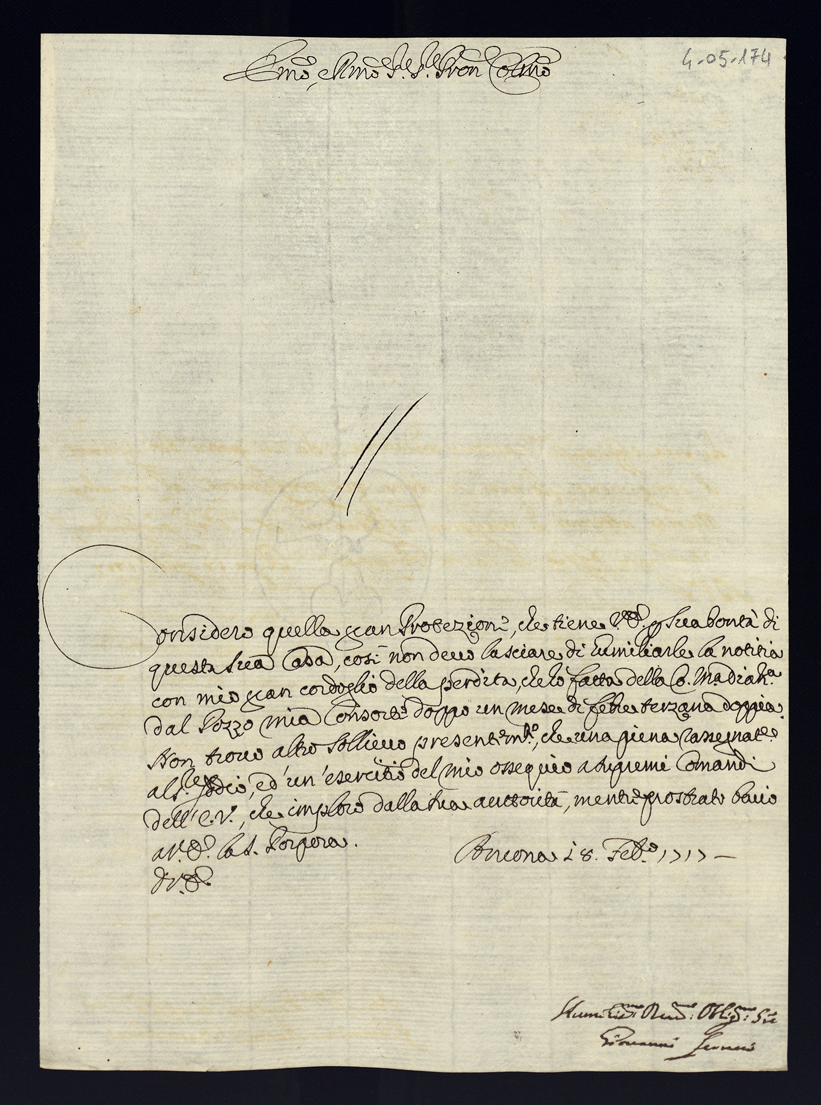 4-05-174
Em̃o, e Rm̃o S.r S.r Pron Col̃mo
Considero quella gran Protezion.e, che tiene V.E. p Sua bontà di
questa sua Casa, così non devo lasciare di umiliarle la notitia
con mio gran cordoglio della perdita, che ho fatta della
dal Pozzo mia Consorte doppo un mese di febre terzana doppia.
Non trovo altro sollievo presentem.te, che una piena rassegnat.e
al S.re Iddio, ed un'esercitio del mio ossequio a supremi Comandi
dell'E.V., che imploro dalla sua auttorità, mentre prostrato bacio
a V.E. la S. Porpora.
Ancona 28. Feb.o 1717 -
Di V.E.
Humiliss.mo Dev.mo Oblig.mo Ser.
Giovanni